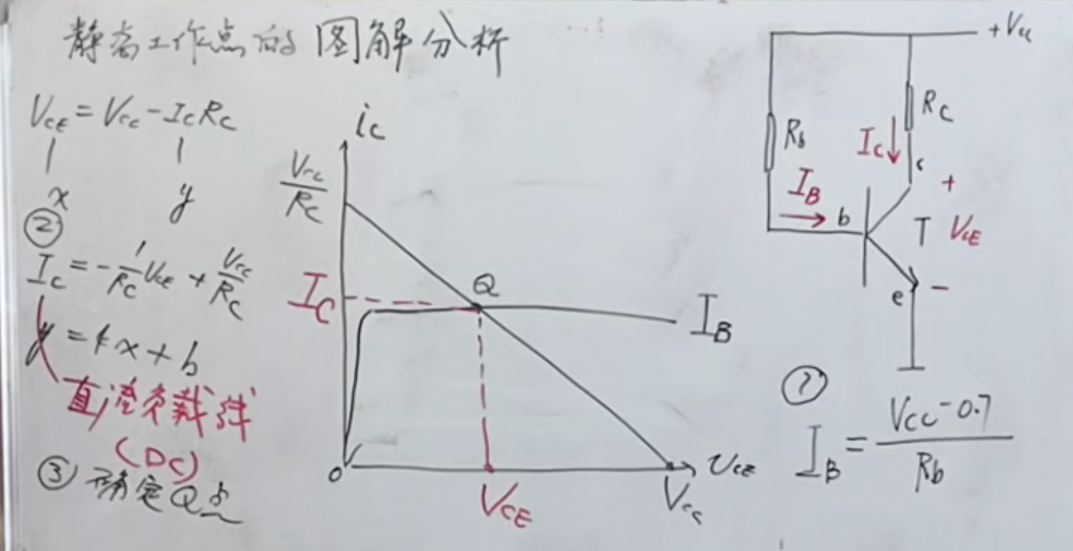 静态工作点的图解分析
V_CE = V_CC - I_C R_C
x y
②
I_C = -1/R_C V_CE + V_CC/R_C
y = kx + b
直流负载线
(DC)
③ 确定Q点
i_C
V_CC/R_C
I_C
Q
I_B
0
V_CE
V_CC
v_CE
+V_CC
R_b
R_C
I_C
c
+
I_B
b
T
V_CE
e
-
①
I_B = (V_CC - 0.7)/R_b